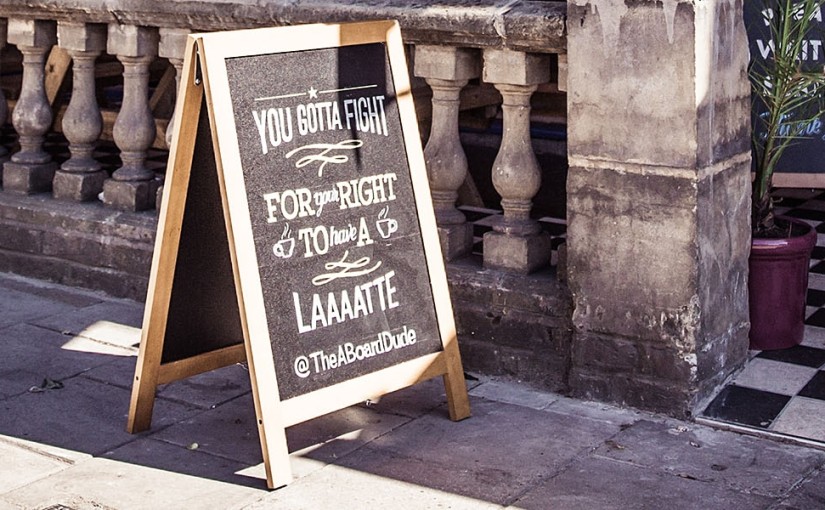 YOU GOTTA FIGHT
FOR your RIGHT
TO have A
LAAAATTE
@TheABoardDude
WAIT